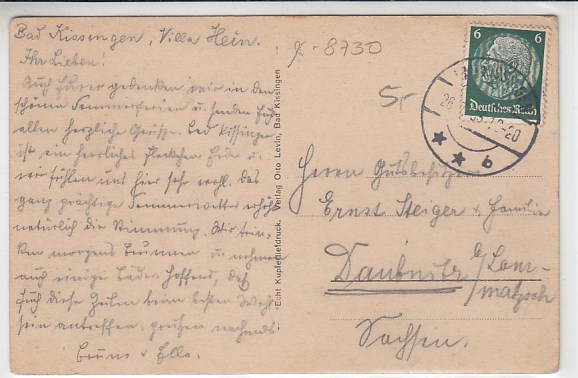 Bad Kissingen, Villa Hein.
Ihr Lieben!
Auch Eurer gedenken wir in den
schönen Sommerferien u. senden Euch
allen herzliche Grüsse. Bad Kissingen
ist ein herrliches Fleckchen Erde u.
wir fühlen uns hier sehr wohl. Das
ganz prächtige Sommerwetter erhöht
natürlich die Stimmung. Wir trin-
ken morgens Brunnen u. nehmen
auch einige Bäder. Hoffend, daß
Euch diese Zeilen beim besten Wohl-
sein antreffen, grüßen
Bruno u. Ella.
Echt Kupfertiefdruck. Verlag Otto Levin, Bad Kissingen
8730
5,-
6 6
Deutsches Reich
26
-20
b
Herrn Gutsbesitzer
Ernst Steiger u. Familie
Daubnitz b/Lom-
/matzsch
Sachsen.